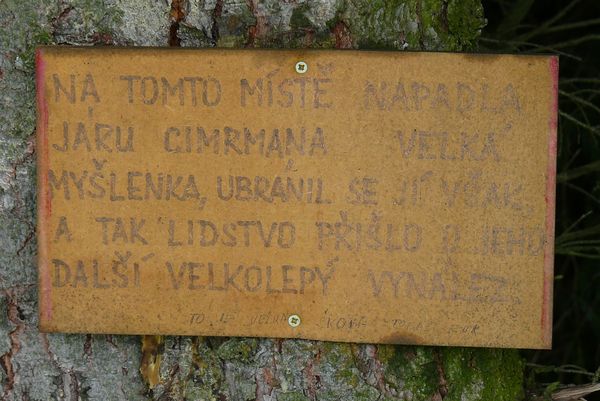 NA TOMTO MÍSTĚ NAPADLA
JÁRU CIMRMANA VELKÁ
MYŠLENKA, UBRÁNIL SE JÍ VŠAK,
A TAK LIDSTVO PŘIŠLO O JEHO
DALŠÍ VELKOLEPÝ VYNÁLEZ!
TO JE